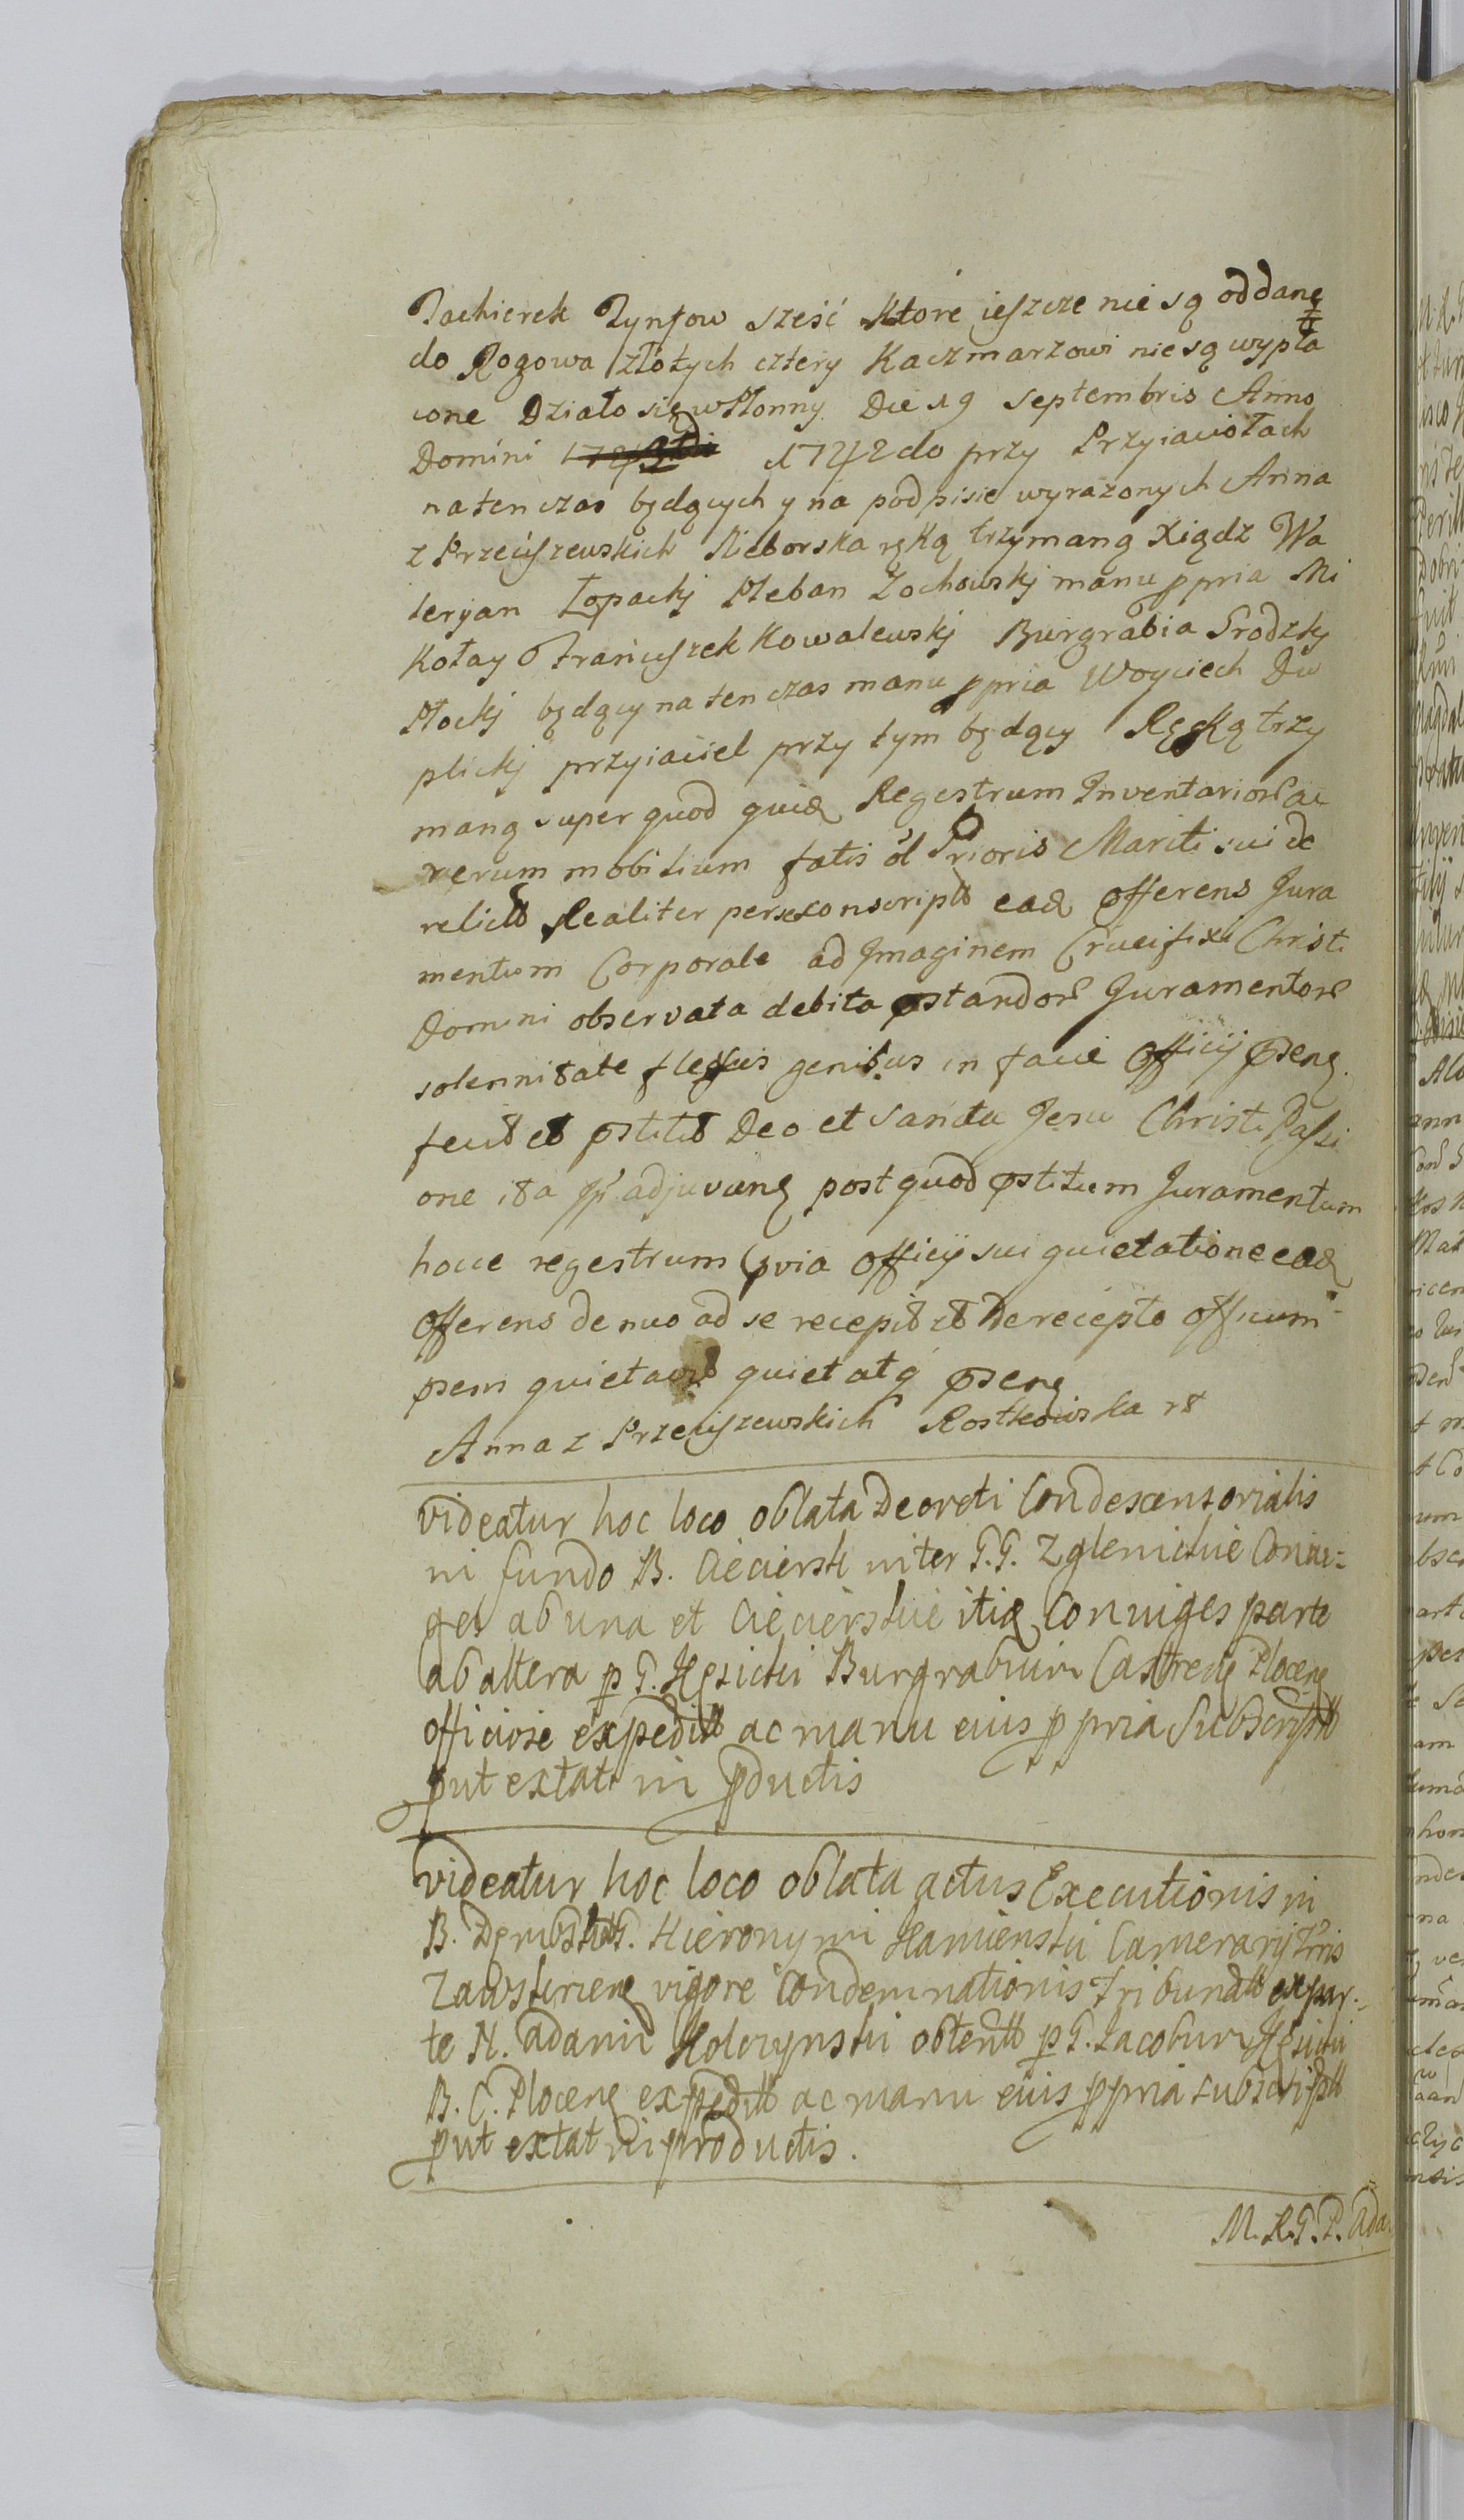 Pachierek Tynfow sześć ktore ieszcze nie są oddane
do Rogowa złotych cztery Kaczmarzowi nie są wypła
cone Działo się w Słonny Die 19 Septembris Anno
Domini 1742do przy Przyiaciołach
na ten czas będących y na podpisie wyrazonych Anna
z Przeciszewskich Nieborska ręką trzymaną Xiądz Wa
leryan Łopackj Pleban Zochowskj manu ppria Mi
kołay Franciszek Kowalewskj Burgrabia Grodzkj
Płockj będący na ten czas manu ppria Woyciech Du
plickj przyiaciel przy tym będący Ręką trzy
maną super quod quidē Regestrum Inventarior ac
rerum mobilium fatis ol Prioris Mariti sui de
relicto Realiter per se conscripto eadē offerens Jura
mentum Corporale ad Imaginem Crucifixi Christi
Domini observata debita pstandor Juramentor
solennitate flexis genibus in facie Officij psenę
fecit et pstitit Deo et Sancta Jesu Christi Passi
one ita adjuvanę post quod pstitum Juramentum
hocce regestrum pvia Officij sui quietatione eadē
Offerens denuo ad se recepit et de recepto Officium
psens quietavit quietatq psenę
Anna z Przeciszewskich Rostkowska
videatur hoc loco oblata Decreti Condescensorialis
in fundo B. Cieciersk inter G.G. Zglenickie Coniu-
ges ab una et Ciecierskie itidē Coniuges parte
ab altera p G. Hesicki Burgrabium Castrenę Plocenę
officiose expeditt ac manu eius ppria Subscriptt
put extat in pductis
videatur hoc loco oblata actus Executionis in
B. G. Hieronymi Kamienski Camerarij Trris
Zawskrzenę vigore Condemnationis Tribunalt ex par-
te N. Adami Kolczynski obtentt p G. Jacobum Hesicki
B. C. Plocenę expeditt ac manu eius ppria subscriptt
put extat in productis.
M. R. G. P. Ada